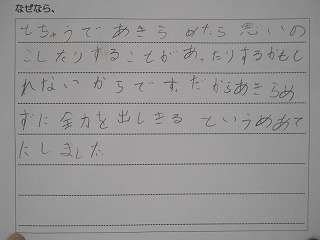 なぜなら、
とちゅうで あきら めたら 思いの
こしたりすることがあったりするかもし
れない からです。だからあきらめ
ずに 全力を出しきる というめあて
にしました